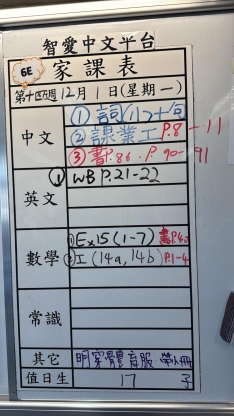 智愛中文平台
6E
家課表
第十四週12月1日(星期一)
中文
①詞(12)+句
②課業工 P.8-11
③書:86. P. 90-91
英文
① WB P.21-22
數學
①Ex15(1-7) 書P.40
②工(14a,14b) P.1-4
常識
其它
明穿體育服
值日生
17